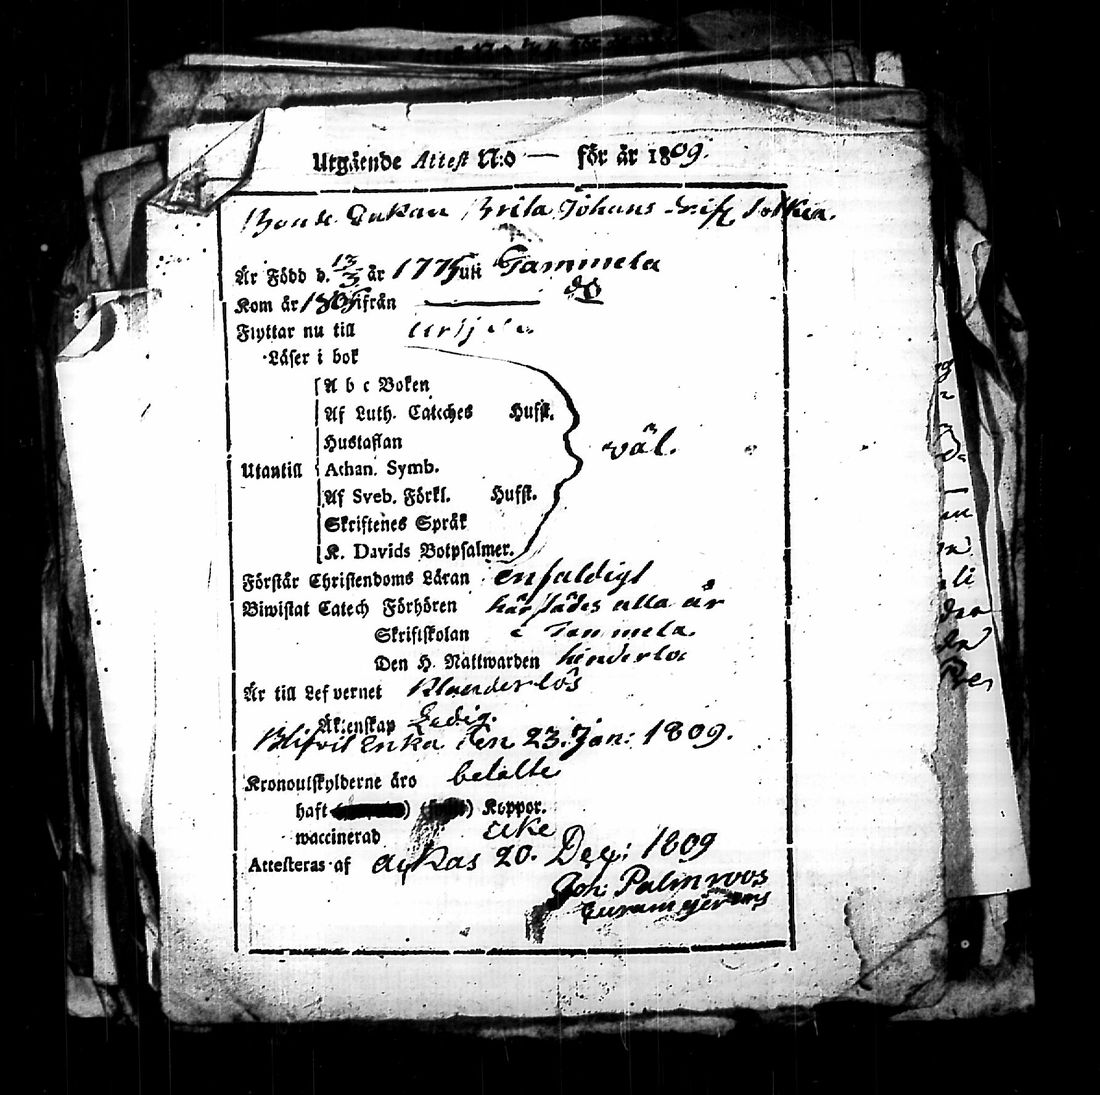 Utgående Attest N:o — för år 1809.
Bonde Enkan Brita Johans
Är Född d. 13/3 år 1775 uti Tammela
Kom år 1805 ifrån — do
Flyttar nu till Urijala
Läser i bok
A b c Boken
Af Luth. Cateches Hufst.
Hustaflan
Utantill Athan. Symb. väl.
Af Sveb. Förkl. Hufst.
Skriftenes Språk
K. Davids Botpsalmer.
Förstår Christendoms Läran enfaldigt
Biwistat Catech Förhören härstädes alla år
Skriftskolan i Tammela
Den H. Nattwarden
Är till Lefvernet Klanderlös
Äktenskap Ledig.
Blifvit Enka den 23. Jan: 1809.
Kronoutskylderne äro betalte
haft Koppor.
waccinerad icke
Attesteras af Ackas 20. Dec: 1809
Joh: Palmroos